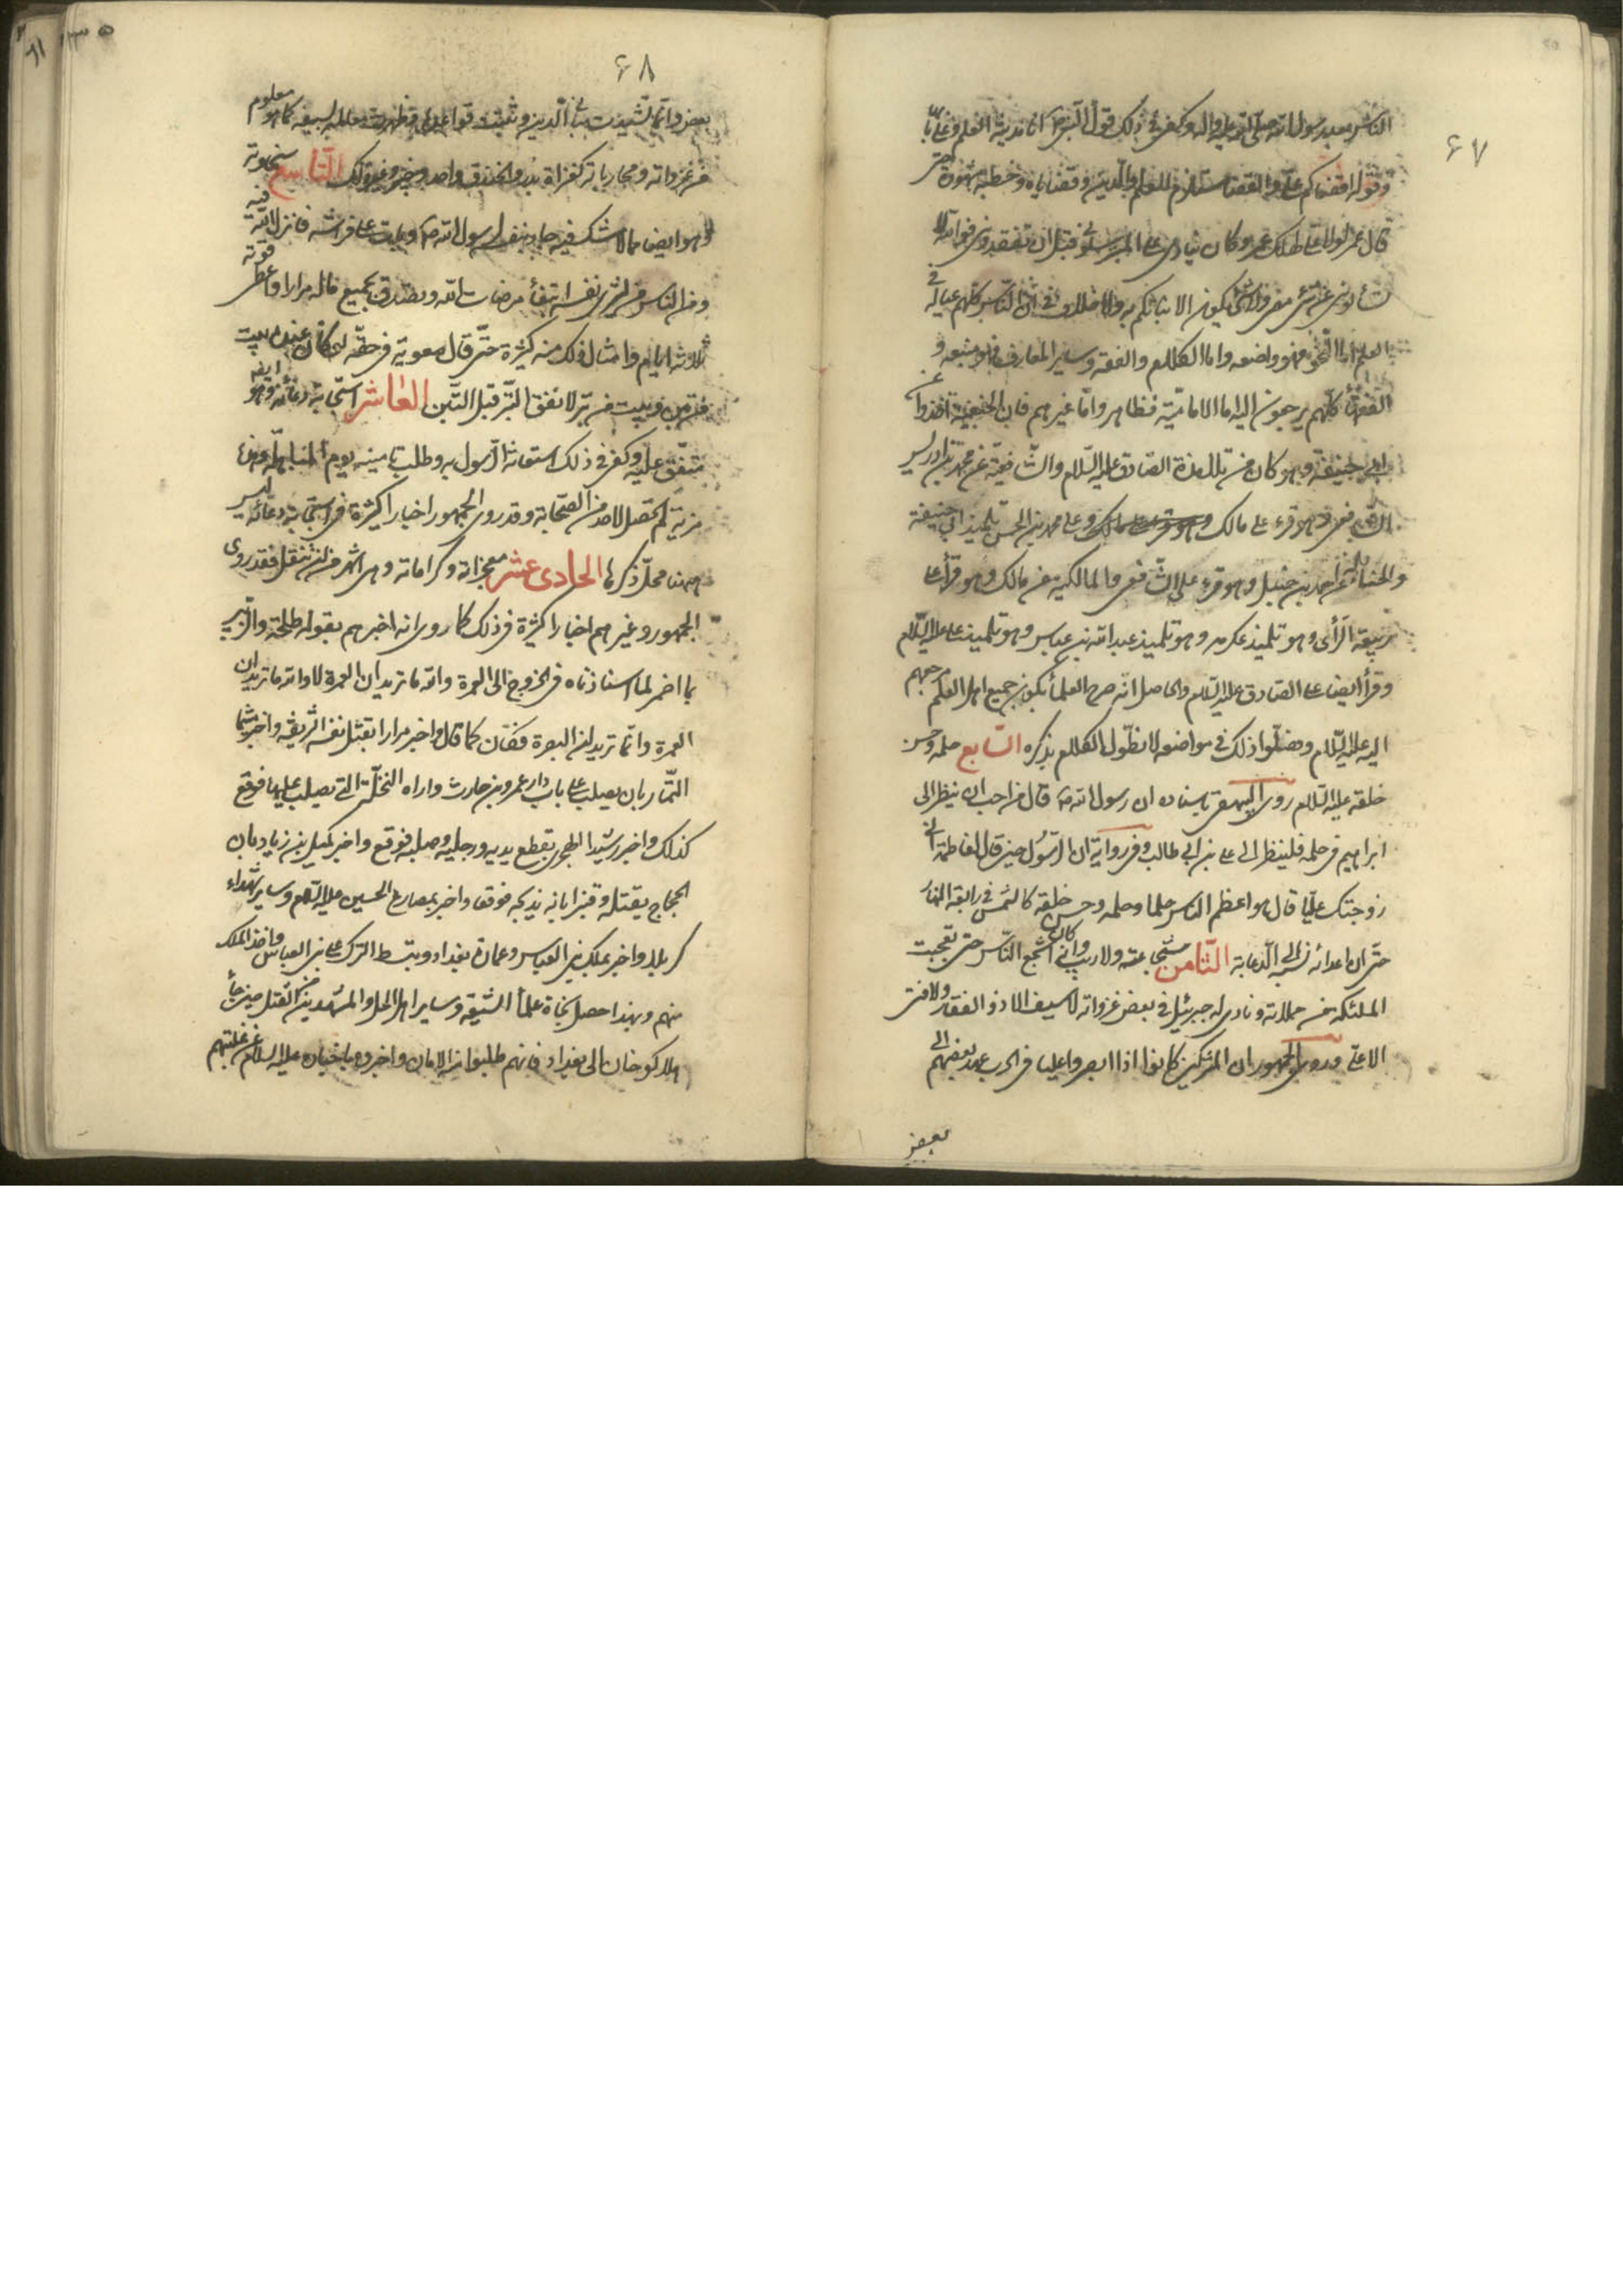 ٦٧
الناس بعد رسول الله صلى الله عليه وآله وكفى في ذلك قول النبي ص انا مدينة العلم وعلي بابها
وقوله اقضاكم علي والقضا مستلزم للعلم والدين وقضاياه وخطبه مشهورة حتى
قال عمر لولا علي لهلك عمر وكان ينادي على المنبر سلوني قبل ان تفقدوني فوالله لا
تسألوني عن شيء مضى ولا شيء يكون الا نبأتكم به ولا خلاف في ان الناس كلهم عياله في
العلم اما النحو فهو واضعه واما الكلام والفقه وساير المعارف فهو منبعه و
الفقهاء كلهم يرجعون اليه اما الامامية فظاهر واما غيرهم فان الحنفية اخذوا عن
ابي حنيفة وهو كان من تلامذة الصادق عليه السلام والشافعية عن محمد بن ادريس
الشافعي وهو قرء على مالك وعلى محمد بن الحسن تلميذ ابي حنيفة
والحنابلة عن احمد بن حنبل وهو قرء على الشافعي والمالكية عن مالك وهو قرأ على
ربيعة الرأى وهو تلميذ عكرمه وهو تلميذ عبد الله بن عباس وهو تلميذ علي عليه السلام
وقرأ ايضا على الصادق عليه السلام والحاصل انه صرح العلماء بكون جميع اهل العلم مرجعهم
اليه عليه السلام وفصلوا ذلك في مواضعه لا نطول الكلام بذكره السابع حلمه وحسن
خلقه عليه السلام روى البيهقي باسناده ان رسول الله ص قال من احب ان ينظر الى
ابراهيم في حلمه فلينظر الى علي بن ابي طالب وفي رواية ان الرسول حين قال لفاطمة اني
زوجتك عليا قال هو اعظم الناس حلما وحلمه وحسن خلقه كالشمس في رابعة النهار
حتى ان اعدائه نسبه الى الدعابة الثامن شجاعته ولا ريب في انه كان اشجع الناس حتى تعجبت
الملئكة من حملاته ونادى له جبرئيل في بعض غزواته لا سيف الا ذو الفقار ولا فتى
الا علي وروى الجمهور ان المشركين كانوا اذا ابصروا عليا في الحرب عهد بعضهم الى
بعض
٦٨
بعض وانما تشيدت مباني الدين وثبتت قواعده وظهرت معالمه بسيفه كما هو معلوم
من غزواته ومحارباته كغزاة بدر والخندق واحد وخيبر وغير ذلك التاسع سخاوته
وهو ايضا مما لا شك فيه جاد بنفسه لرسول الله ص وبات على فراشه فانزل الله فيه
ومن الناس من يشري نفسه ابتغاء مرضات الله وتصدق بجميع ماله مرارا واعطى قوته
ثلاثة ايام وامثال ذلك منه كثيرة حتى قال معوية في حقه لو كان عنده بيت
من تبن وبيت من تبر لانفق التبر قبل التبن العاشر استجابة دعائه وهو ايضا
متفق عليه وكفى في ذلك استعانة الرسول به وطلب تامينه يوم المباهلة وهذه
مزية لم تحصل لاحد من الصحابة وقد روى الجمهور اخبارا كثيرة في استجابة دعائه ليس
ههنا محل ذكرها الحادي عشر معجزاته وكراماته وهي اشهر من ان تنقل فقد روى
الجمهور وغيرهم اخبارا كثيرة في ذلك كما روى انه اخبرهم بقوله طلحة والزبير
بما اضمر لما استاذناه في الخروج الى العمرة والله ما تريدان العمرة لا والله ما تريدان
العمرة وانما تريدان البصرة فكان كما قال واخبر مرارا بقتل نفسه الشريفه واخبر ميثما
التمار بان يصلب على باب دار عمرو بن حارث واراه النخلة التي يصلب عليها فوقع
كذلك واخبر رشيد الهجري بقطع يديه ورجليه وصلبه فوقع واخبر كميل بن زياد بان
الحجاج يقتله وقنبرا بانه يذبحه فوقعا واخبر بمصارع الحسين عليه السلام وساير شهداء
كربلا واخبر بملك بني العباس وعمارة بغداد وتسلط الترك على بني العباس واخذ الملك
منهم وبهذا حصل نجاة علماء الشيعة وساير اهل الحلة والمشهدين من القتل حين جاء
هلاكو خان الى بغداد فانهم طلبوا منه الامان واخبروه باخباره عليه السلام عن غلبتهم